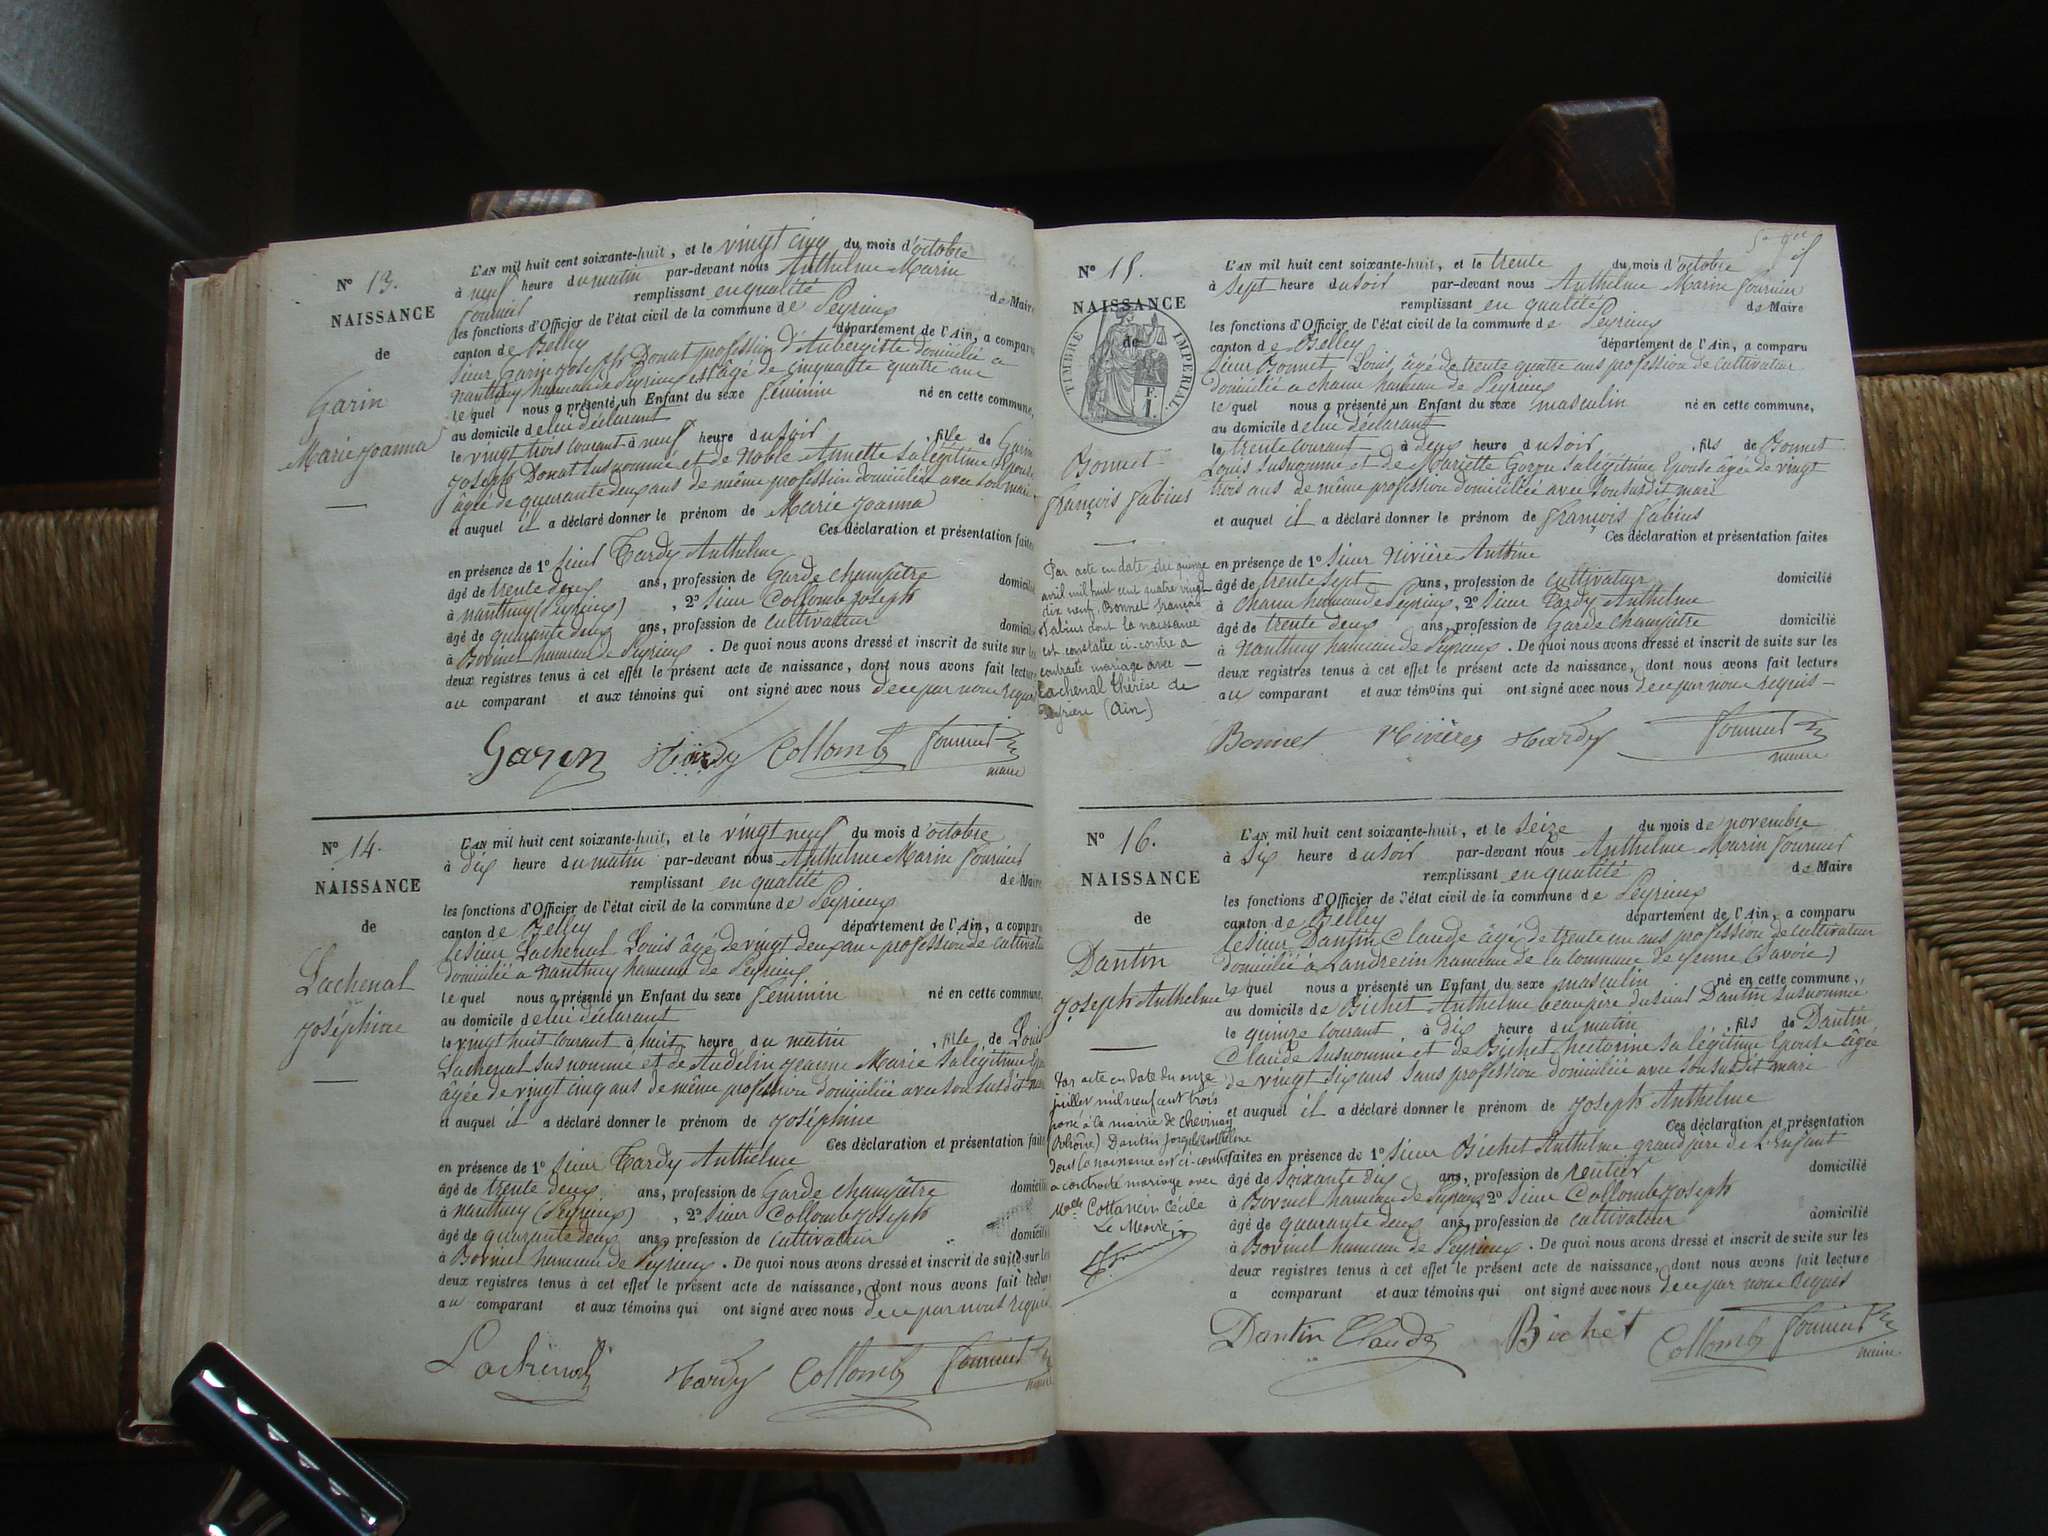 N° 13.
NAISSANCE
de
Garin
Marie Joanna
L'AN mil huit cent soixante-huit, et le vingt cinq du mois d'octobre
à neuf heure du matin par-devant nous Anthelme Marin
Fournier remplissant en qualité de Maire
les fonctions d'Officier de l'état civil de la commune de Peyrieu
canton de Belley département de l'Ain, a comparu
Sieur Garin Joseph Donat profession d'Aubergiste domicilié a
nanthuy hameau de Peyrieu et âgé de cinquante quatre ans
le quel nous a présenté un Enfant du sexe féminin né en cette commune,
au domicile de lui déclarant
le vingt trois courant à neuf heure du soir , fille de Garin
Joseph Donat susnommé et de Noble Annette sa légitime Epouse
âgée de quarante deux ans de même profession domiciliée avec son mari
et auquel il a déclaré donner le prénom de Marie Joanna
Ces déclaration et présentation faites
en présence de 1° sieur Tardy Anthelme
âgé de trente deux ans, profession de Garde champêtre domicilié
à nanthuy (Peyrieu) , 2° sieur Collomb Joseph
âgé de quarante deux ans, profession de cultivateur domicilié
à Bovinel hameau de Peyrieu . De quoi nous avons dressé et inscrit de suite sur les
deux registres tenus à cet effet le présent acte de naissance, dont nous avons fait lecture
au comparant et aux témoins qui ont signé avec nous de ce par nous requis
Garin Tardy Collomb Fournier
maire
N° 14.
NAISSANCE
de
Lachenal
Joséphine
L'AN mil huit cent soixante-huit, et le vingt neuf du mois d'octobre
à dix heure du matin par-devant nous Anthelme Marin Fournier
remplissant en qualité de Maire
les fonctions d'Officier de l'état civil de la commune de Peyrieu
canton de Belley département de l'Ain, a comparu
le sieur Lachenal Louis âgé de vingt deux ans profession de cultivateur
domicilié a nanthuy hameau de Peyrieu
le quel nous a présenté un Enfant du sexe féminin né en cette commune,
au domicile de lui déclarant
le vingt huit courant à huit heure du matin , fille de Louis
Lachenal susnommé et de Andelin Jeanne Marie sa légitime Epouse
âgée de vingt cinq ans de même profession domiciliée avec son susdit mari
et auquel il a déclaré donner le prénom de Joséphine
Ces déclaration et présentation faites
en présence de 1° sieur Tardy Anthelme
âgé de trente deux ans, profession de Garde champêtre domicilié
à nanthuy (Peyrieu) , 2° sieur Collomb Joseph
âgé de quarante deux ans, profession de cultivateur domicilié
à Bovinel hameau de Peyrieu . De quoi nous avons dressé et inscrit de suite sur les
deux registres tenus à cet effet le présent acte de naissance, dont nous avons fait lecture
au comparant et aux témoins qui ont signé avec nous de ce par nous requis
Lachenal Tardy Collomb Fournier
maire
N° 15.
NAISSANCE
de
TIMBRE IMPERIAL
1 F.
Bonnet
François Fabius
Par acte en date du quinze
avril mil huit cent quatre vingt
dix neuf, Bonnet François
Fabius dont la naissance
est constatée ci-contre a
contracté mariage avec
Lachenal Thérèse de
Peyrieu (Ain)
L'AN mil huit cent soixante-huit, et le trente du mois d'octobre
à sept heure du soir par-devant nous Anthelme Marin Fournier
remplissant en qualité de Maire
les fonctions d'Officier de l'état civil de la commune de Peyrieu
canton de Belley département de l'Ain, a comparu
sieur Bonnet Louis âgé de trente quatre ans profession de cultivateur
domicilié a chann hameau de Peyrieu
le quel nous a présenté un Enfant du sexe masculin né en cette commune,
au domicile de lui déclarant
le trente courant à deux heure du soir , fils de Bonnet
Louis susnommé et de Mariette Gojon sa légitime Epouse âgée de vingt
trois ans de même profession domiciliée avec son susdit mari
et auquel il a déclaré donner le prénom de François Fabius
Ces déclaration et présentation faites
en présence de 1° sieur Rivière Antoine
âgé de trente sept ans, profession de cultivateur domicilié
à chann hameau de Peyrieu, 2° sieur Tardy Anthelme
âgé de trente deux ans, profession de Garde champêtre domicilié
à nanthuy hameau de Peyrieu . De quoi nous avons dressé et inscrit de suite sur les
deux registres tenus à cet effet le présent acte de naissance, dont nous avons fait lecture
au comparant et aux témoins qui ont signé avec nous de ce par nous requis
Bonnet Rivière Tardy Fournier
maire
N° 16.
NAISSANCE
de
Dantin
Joseph Anthelme
Par acte en date du onze
juillet mil neuf cent trois
passé à la mairie de Chevinay
(Rhône) Dantin Joseph Anthelme
dont la naissance est ci-contre
a contracté mariage avec
Melle Cottancin Cécile
Le Maire
Fournier
L'AN mil huit cent soixante-huit, et le seize du mois de novembre
à six heure du soir par-devant nous Anthelme Marin Fournier
remplissant en qualité de Maire
les fonctions d'Officier de l'état civil de la commune de Peyrieu
canton de Belley département de l'Ain, a comparu
le sieur Dantin Claude âgé de trente un ans profession de cultivateur
domicilié à Landrecin hameau de la commune de Yenne (Savoie)
le quel nous a présenté un Enfant du sexe masculin né en cette commune,
au domicile de Bichet Anthelme beau père du sieur Dantin susnommé
le quinze courant à dix heure du matin fils de Dantin
Claude susnommé et de Bichet Victorine sa légitime Epouse âgée
de vingt six ans sans profession domiciliée avec son susdit mari
et auquel il a déclaré donner le prénom de Joseph Anthelme
Ces déclaration et présentation
faites en présence de 1° sieur Bichet Anthelme grand père de l'Enfant
âgé de soixante dix ans, profession de rentier domicilié
à Bovinel hameau de Peyrieu 2° sieur Collomb Joseph
âgé de quarante deux ans, profession de cultivateur domicilié
à Bovinel hameau de Peyrieu . De quoi nous avons dressé et inscrit de suite sur les
deux registres tenus à cet effet le présent acte de naissance, dont nous avons fait lecture
a comparant et aux témoins qui ont signé avec nous de ce par nous requis
Dantin Claude Bichet Collomb Fournier
maire